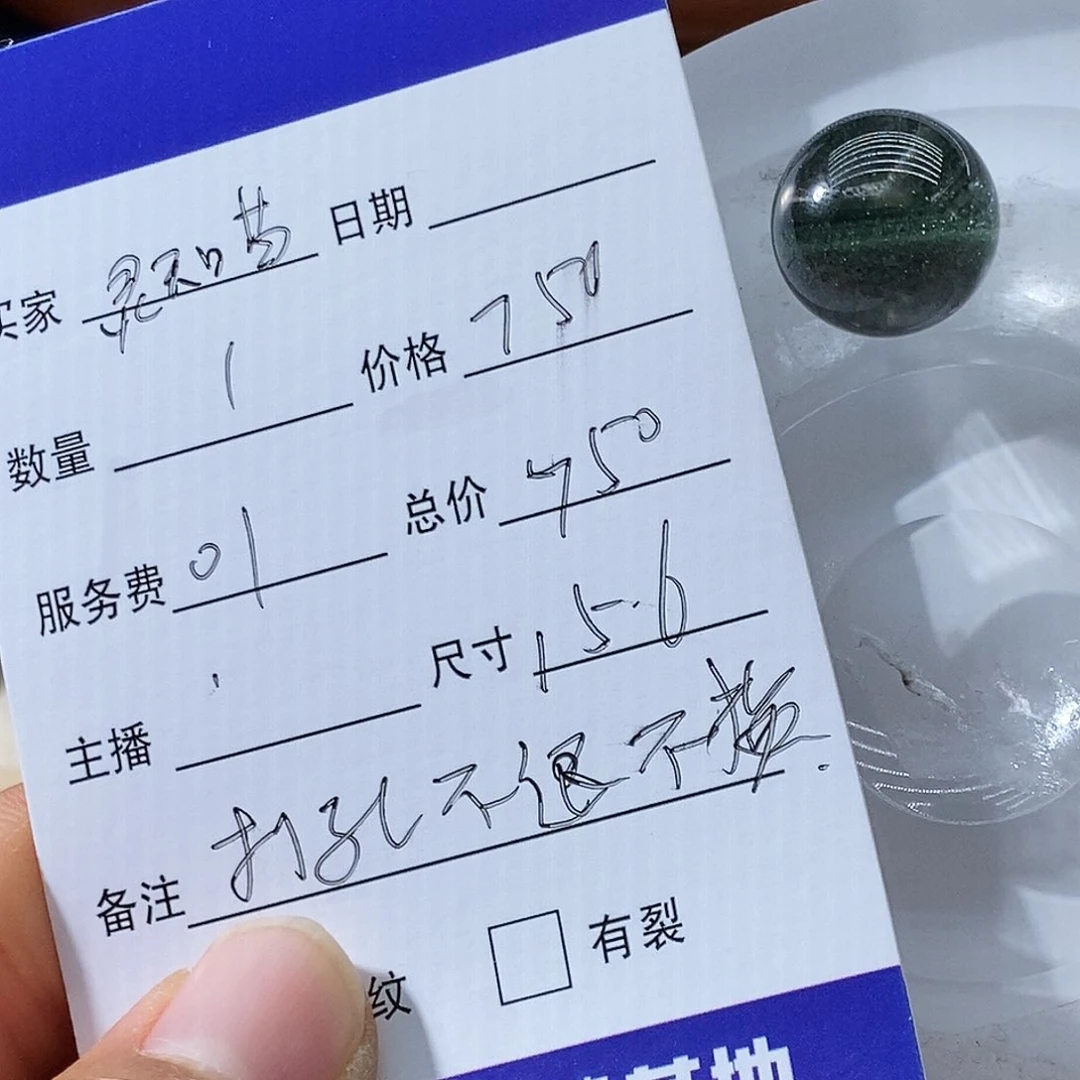 买家 日期
数量 1 价格 750
服务费 01 总价 750
主播 尺寸 15.6
备注 打孔不退不换.
纹 有裂
基地